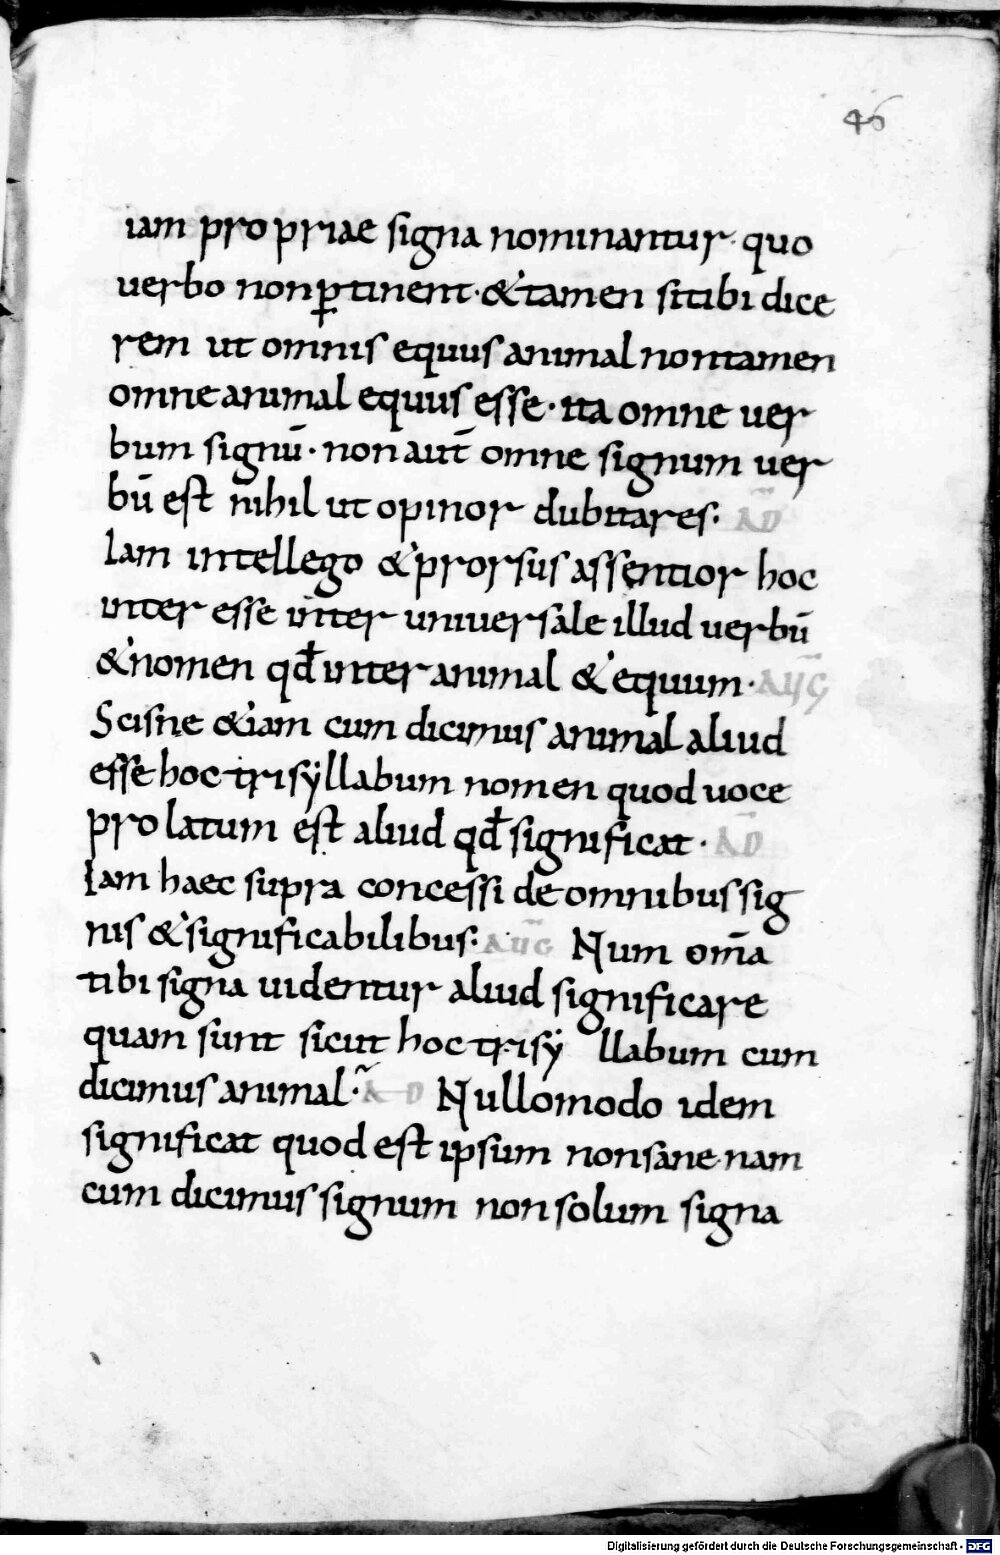 46
iam propriae signa nominantur· quo
uerbo non ꝑtinent· & tamen si tibi dice
rem ut omnis equus animal non tamen
omne animal equus esse· ita omne uer
bum signū· non aut̄ omne signum uer
bū est nihil ut opinor dubitares· AD
Iam intellego & prorsus assentior hoc
inter esse inter uniuersale illud uerbū
& nomen qđ inter animal & equum· AUG
Scisne &iam cum dicimus animal aliud
esse hoc trisÿllabum nomen quod uoce
prolatum est aliud qđ significat· AD
Iam haec supra concessi de omnibus sig
nis & significabilibus· AUG Num om̄a
tibi signa uidentur aliud significare
quam sunt sicut hoc trisÿ llabum cum
dicimus animal· AD Nullomodo idem
significat quod est ipsum non sane nam
cum dicimus signum non solum signa
Digitalisierung gefördert durch die Deutsche Forschungsgemeinschaft - DFG